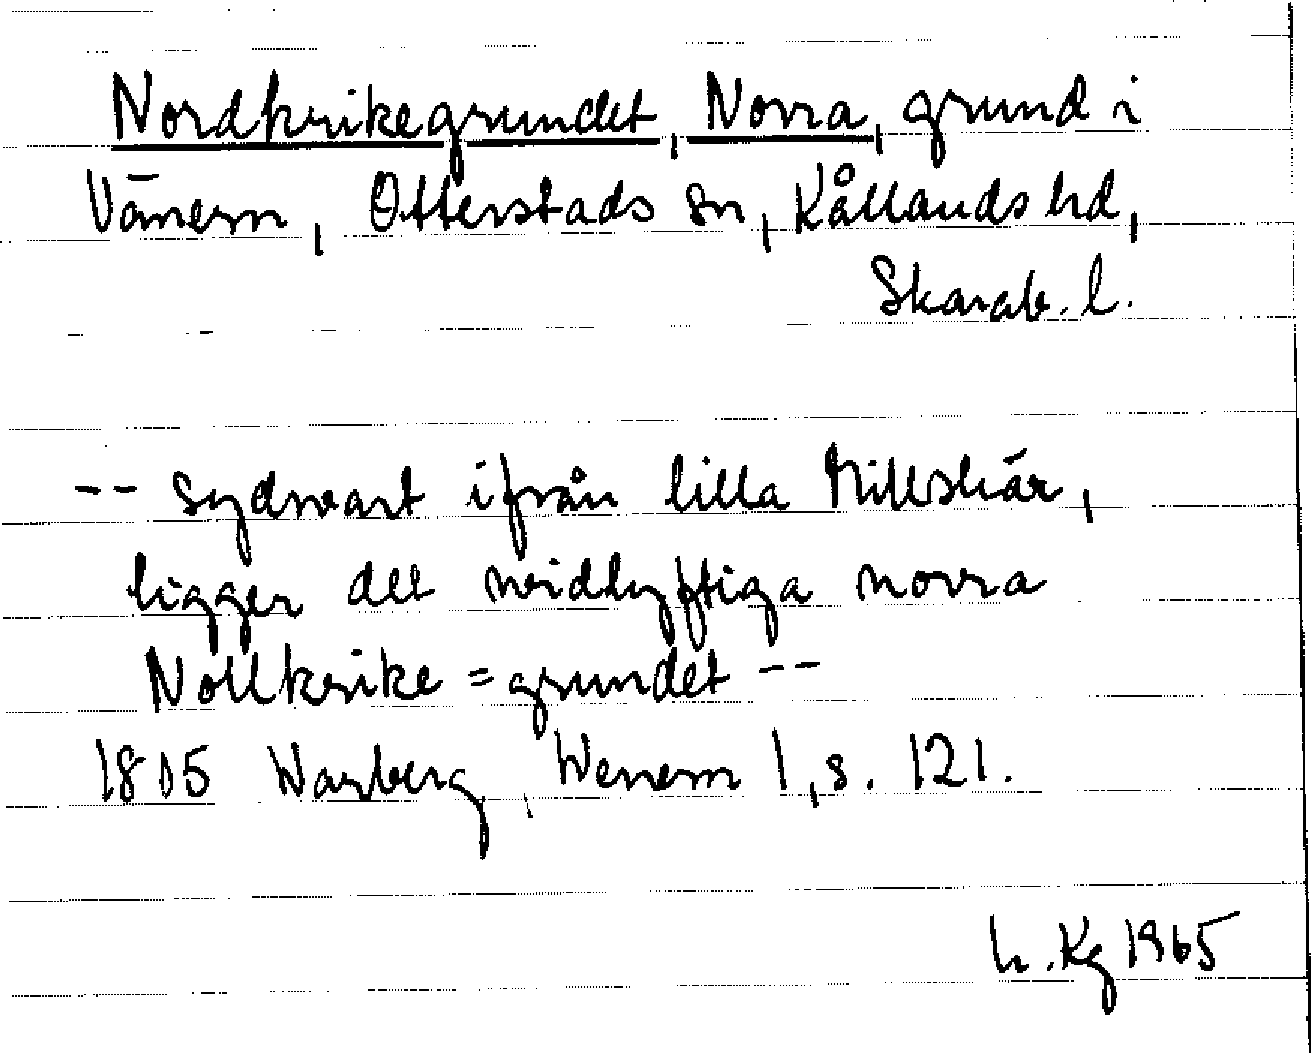 Nordkrikegrundet, Norra, grund i
Vänern, Otterstads sn, Kållands hd,
Skarab. l.
-- sydwart ifrån lilla Millskär,
ligger det widlyftiga norra
Nollkrike=grundet --
1805 Warberg, Wenern 1, s. 121.
h. Kg 1965